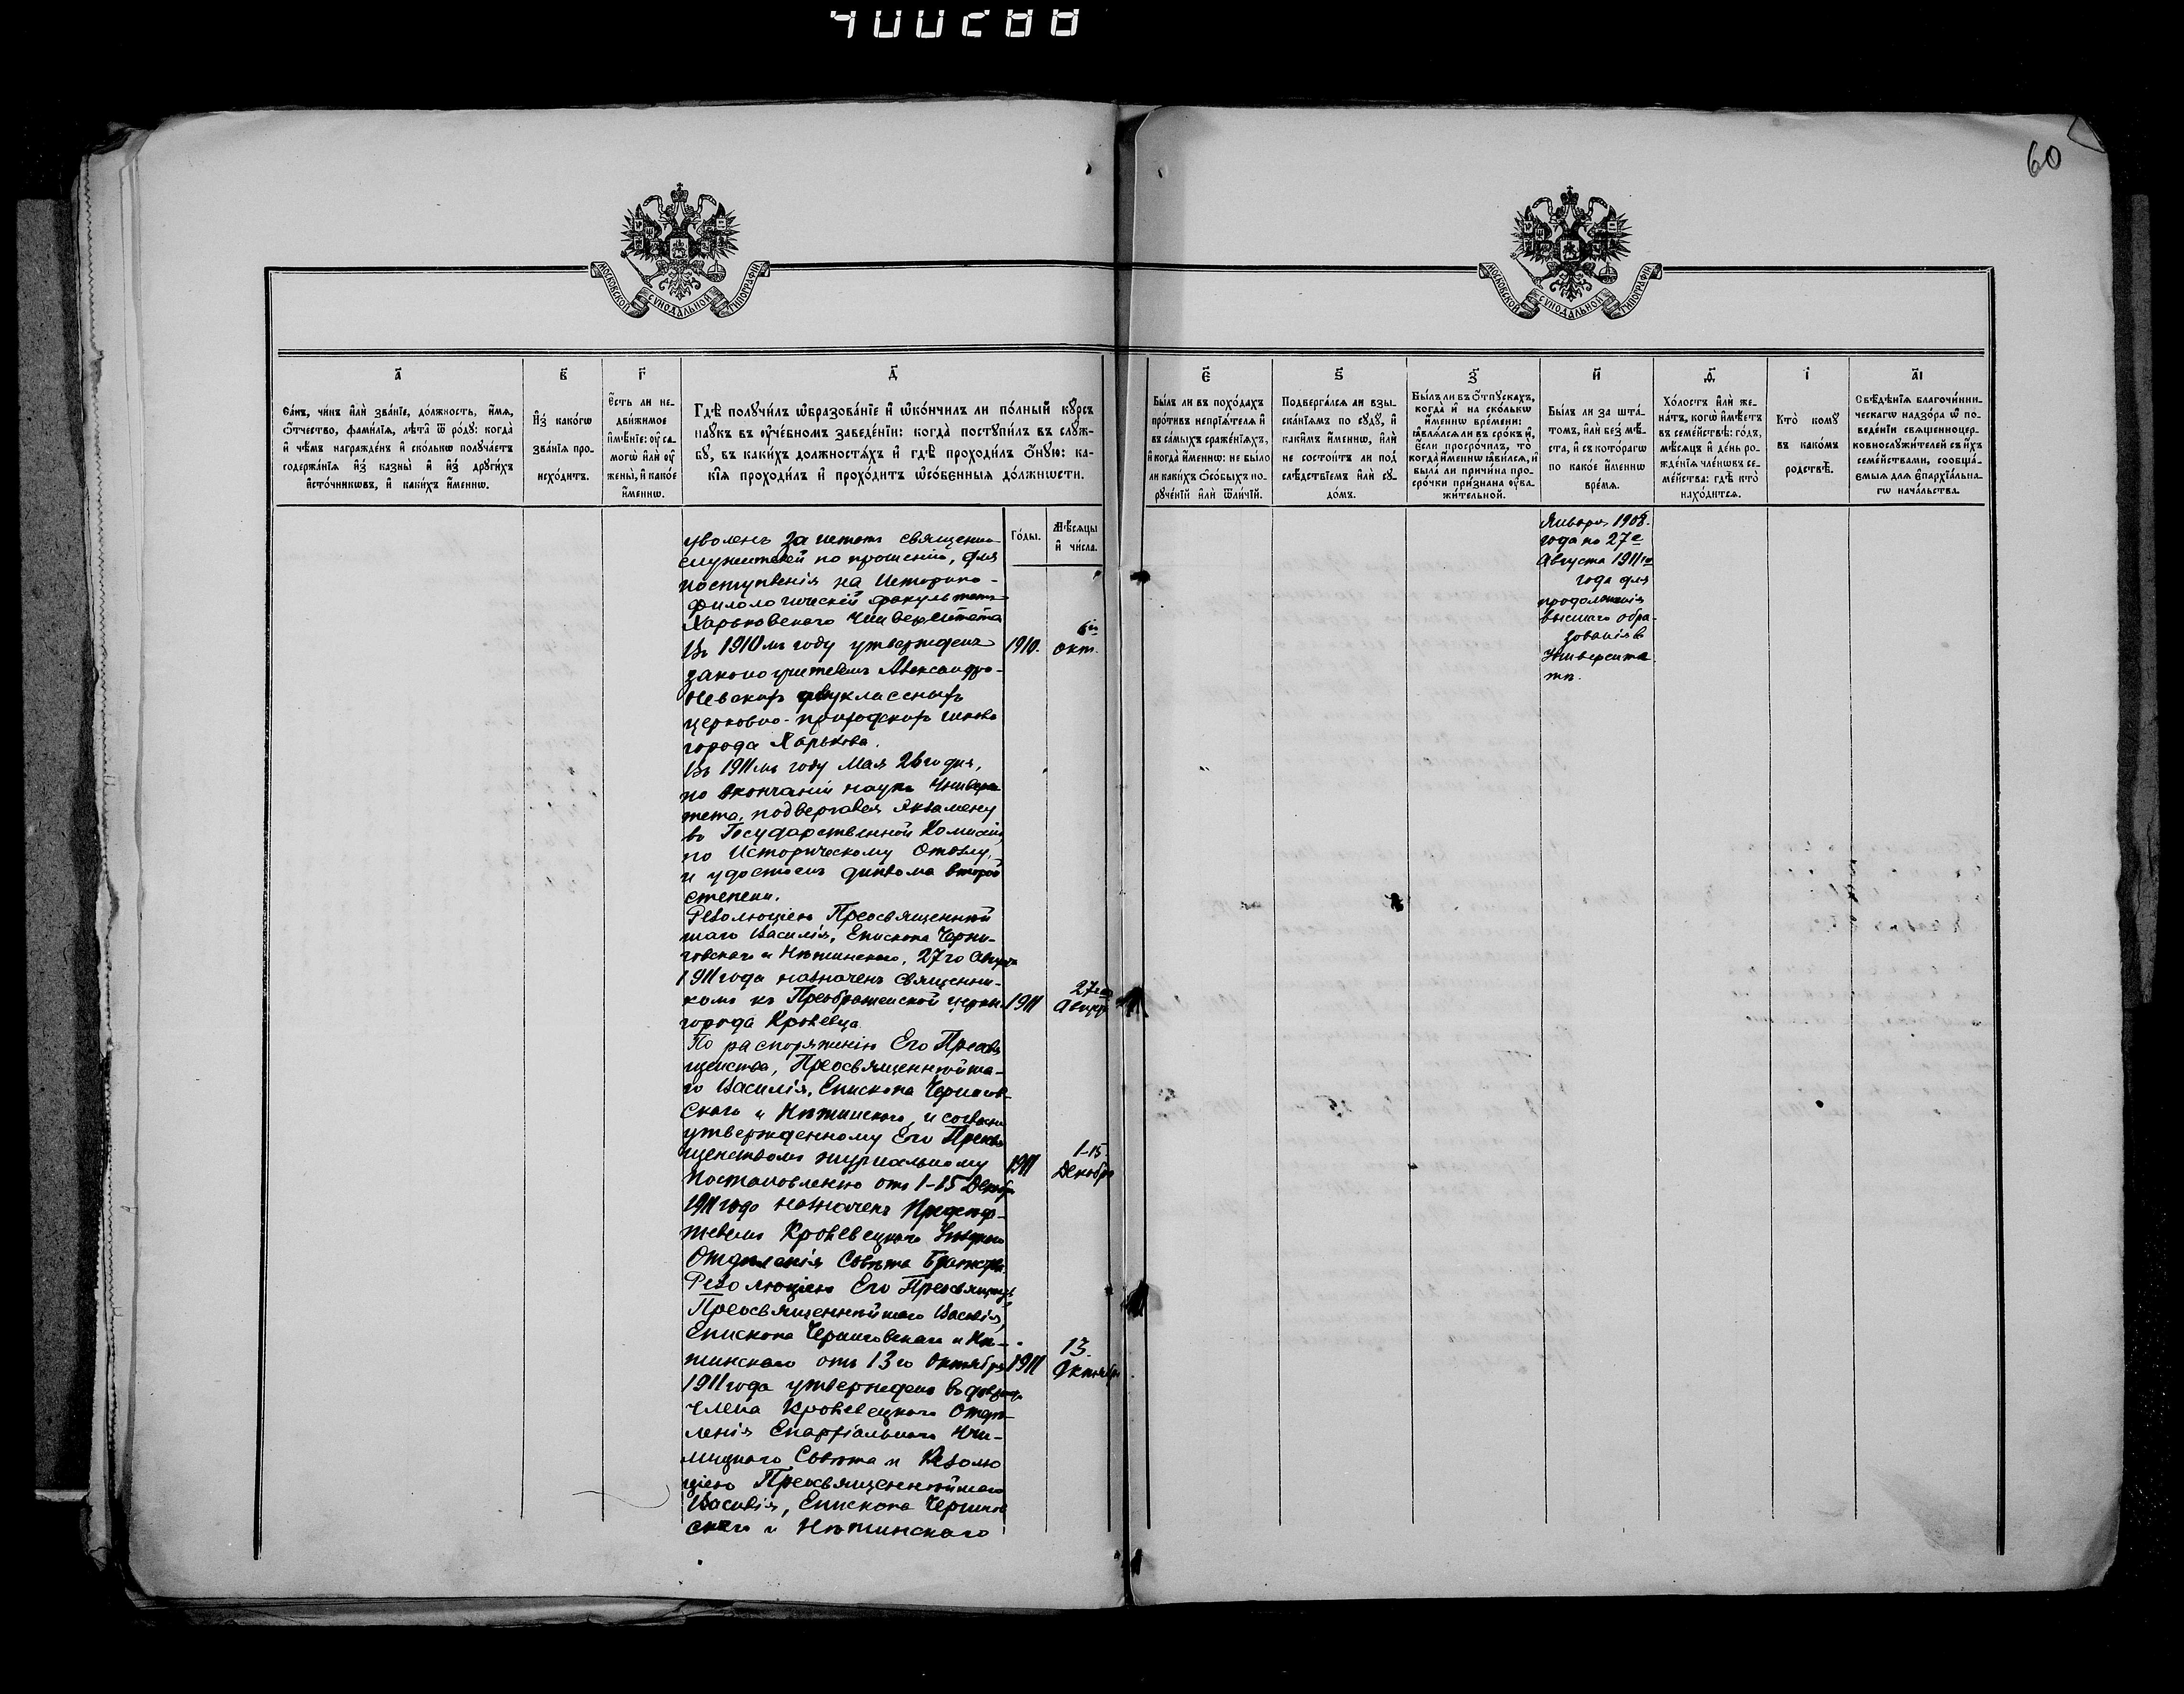 400288
60
МОСКОВСКОЙ СѴНОДАЛЬНОЙ ТИПОГРАФІИ
МОСКОВСКОЙ СѴНОДАЛЬНОЙ ТИПОГРАФІИ
а҃
Са́нъ, чи́нъ и҆лѝ зва́нїе, до́лжность, и҆́мѧ,
ѻ҆́тчество, фами́лїѧ, лѣ́та ѿ ро́дꙋ: когда̀
и҆ чѣ́мъ награжде́нъ и҆ ско́лькѡ полꙋча́етъ
содержа́нїѧ и҆з̾ казны̀ и҆ и҆з̾ дрꙋги́хъ
и҆сто́чникѡвъ, и҆ каки́хъ и҆́меннѡ.
в҃
И҆з̾ како́гѡ
зва́нїѧ про-
исхо́дитъ.
г҃
Є҆́сть ли не-
дви́жимое
и҆мѣ́нїе: ᲂу҆ са-
могѡ̀ и҆лѝ ᲂу҆
жены̀, и҆ како́е
и҆́меннѡ.
д҃
Гдѣ̀ полꙋчи́лъ ѡ҆бразова́нїе и҆ ѡ҆ко́нчилъ ли по́лный кꙋ́рсъ
наꙋ́къ въ ᲂу҆че́бномъ заведе́нїи: когда̀ постꙋпи́лъ въ слꙋ́ж-
бꙋ, въ каки́хъ должностѧ́хъ и҆ гдѣ̀ проходи́лъ ѻ҆́нꙋю: ка-
кі́ѧ проходи́лъ и҆ прохо́дитъ ѡ҆со́бенныѧ до́лжнѡсти.
Го́ды.
Мѣ́сѧцы
и҆ чи́сла.
уволенъ за штатъ священно-
служителей по прошенію, для
поступленія на Историко-
филологическій факультетъ
Харьковскаго Университета
Въ 1910мъ году утвержденъ
законоучителемъ Александро-
Невской двуклассной
церковно-приходской школы
города Харькова.
Въ 1911мъ году Мая 26го дня,
по окончаніи наукъ Универси
тета, подвергался экзамену
въ Государственной Комиссіи
по Историческому Отдѣлу,
и удостоенъ диплома второй
степени.
Резолюціею Преосвященнѣй
шаго Василія, Епископа Черни-
говскаго и Нѣжинскаго, 27го Августа
1911 года назначенъ священни-
комъ къ Преображенской церкви
города Кролевца
По распоряженію Его Преосвя
щенства, Преосвященнѣйша-
го Василія, Епископа Чернигов-
скаго и Нѣжинскаго, и согласно
утвержденному Его Преосвя
щенствомъ журнальному
постановленію отъ 1-15 Декабря
1911 года назначенъ Предсѣда-
телемъ Кролевецкаго Уѣзднаго
Отдѣленія Совѣта Братства.
Резолюціею Его Преосвященства
Преосвященнѣйшаго Василія,
Епископа Черниговскаго и Нѣ-
жинскаго отъ 13го Октября
1911 года утвержденъ въ должности
члена Кролевецкаго Отдѣ-
ленія Епархіальнаго Учи-
лищнаго Совѣта и Резолю
ціею Преосвященнѣйшаго
Василія, Епископа Чернигов
скаго и Нѣжинскаго
1910.
6го
Окт.
1911
27го
Август
1911
1-15.
Декабря
1911
13.
Октября
є҃
Бы́лъ ли въ похо́дахъ
про́тивъ непрїѧ́телѧ и҆
въ са́мыхъ сраже́нїѧхъ,
и҆ когда̀ и҆́меннѡ: не бы́ло
ли каки́хъ ѻ҆со́быхъ по-
рꙋче́нїй и҆лѝ ѿли́чїй.
ѕ҃
Подверга́лсѧ ли взы-
ска́нїѧмъ по сꙋдꙋ̀, и҆
каки̑мъ и҆́меннѡ, и҆лѝ
не состои́тъ ли под̾
слѣ́дствїемъ и҆лѝ сꙋ-
до́мъ.
з҃
Бы́лъ ли въ ѻ҆́тпꙋскахъ,
когда̀ и҆ на ско́лькѡ
и҆́меннѡ вре́мени:
ꙗ҆влѧ́лсѧ ли въ сро́къ и҆,
є҆́сли просро́чилъ, то̀
когда̀ и҆́меннѡ ꙗ҆ви́лсѧ, и҆
была̀ ли причи́на про-
сро́чки при́знана ᲂу҆ва-
жи́тельной.
и҃
Бы́лъ ли за шта́-
томъ, и҆лѝ без̾ мѣ́-
ста, и҆ съ кото́рагѡ
по како́е и҆́меннѡ
вре́мѧ.
Января 1908.
года по 27е
Августа 1911го
года для
продолженія
высшаго обра-
зованія въ
Университе
тѣ.
ѳ҃
Хо́лостъ и҆лѝ же-
на́тъ, когѡ̀ и҆мѣ́етъ
въ семе́йствѣ: го́дъ,
мѣ́сѧцъ и҆ де́нь ро-
жде́нїѧ чле́нѡвъ се-
ме́йства: гдѣ̀ кто̀
нахо́дитсѧ.
і҃
Кто̀ комꙋ̀
въ како́мъ
родствѣ̀.
аі҃
Свѣ́дѣнїѧ благочи́нни-
ческагѡ надзо́ра ѡ҆ по-
веде́нїи свѧщенноцер-
ковнослꙋжи́телей съ и҆́хъ
семе́йствами, сообща́-
емыѧ длѧ є҆парҳїа́льна-
гѡ нача́льства.